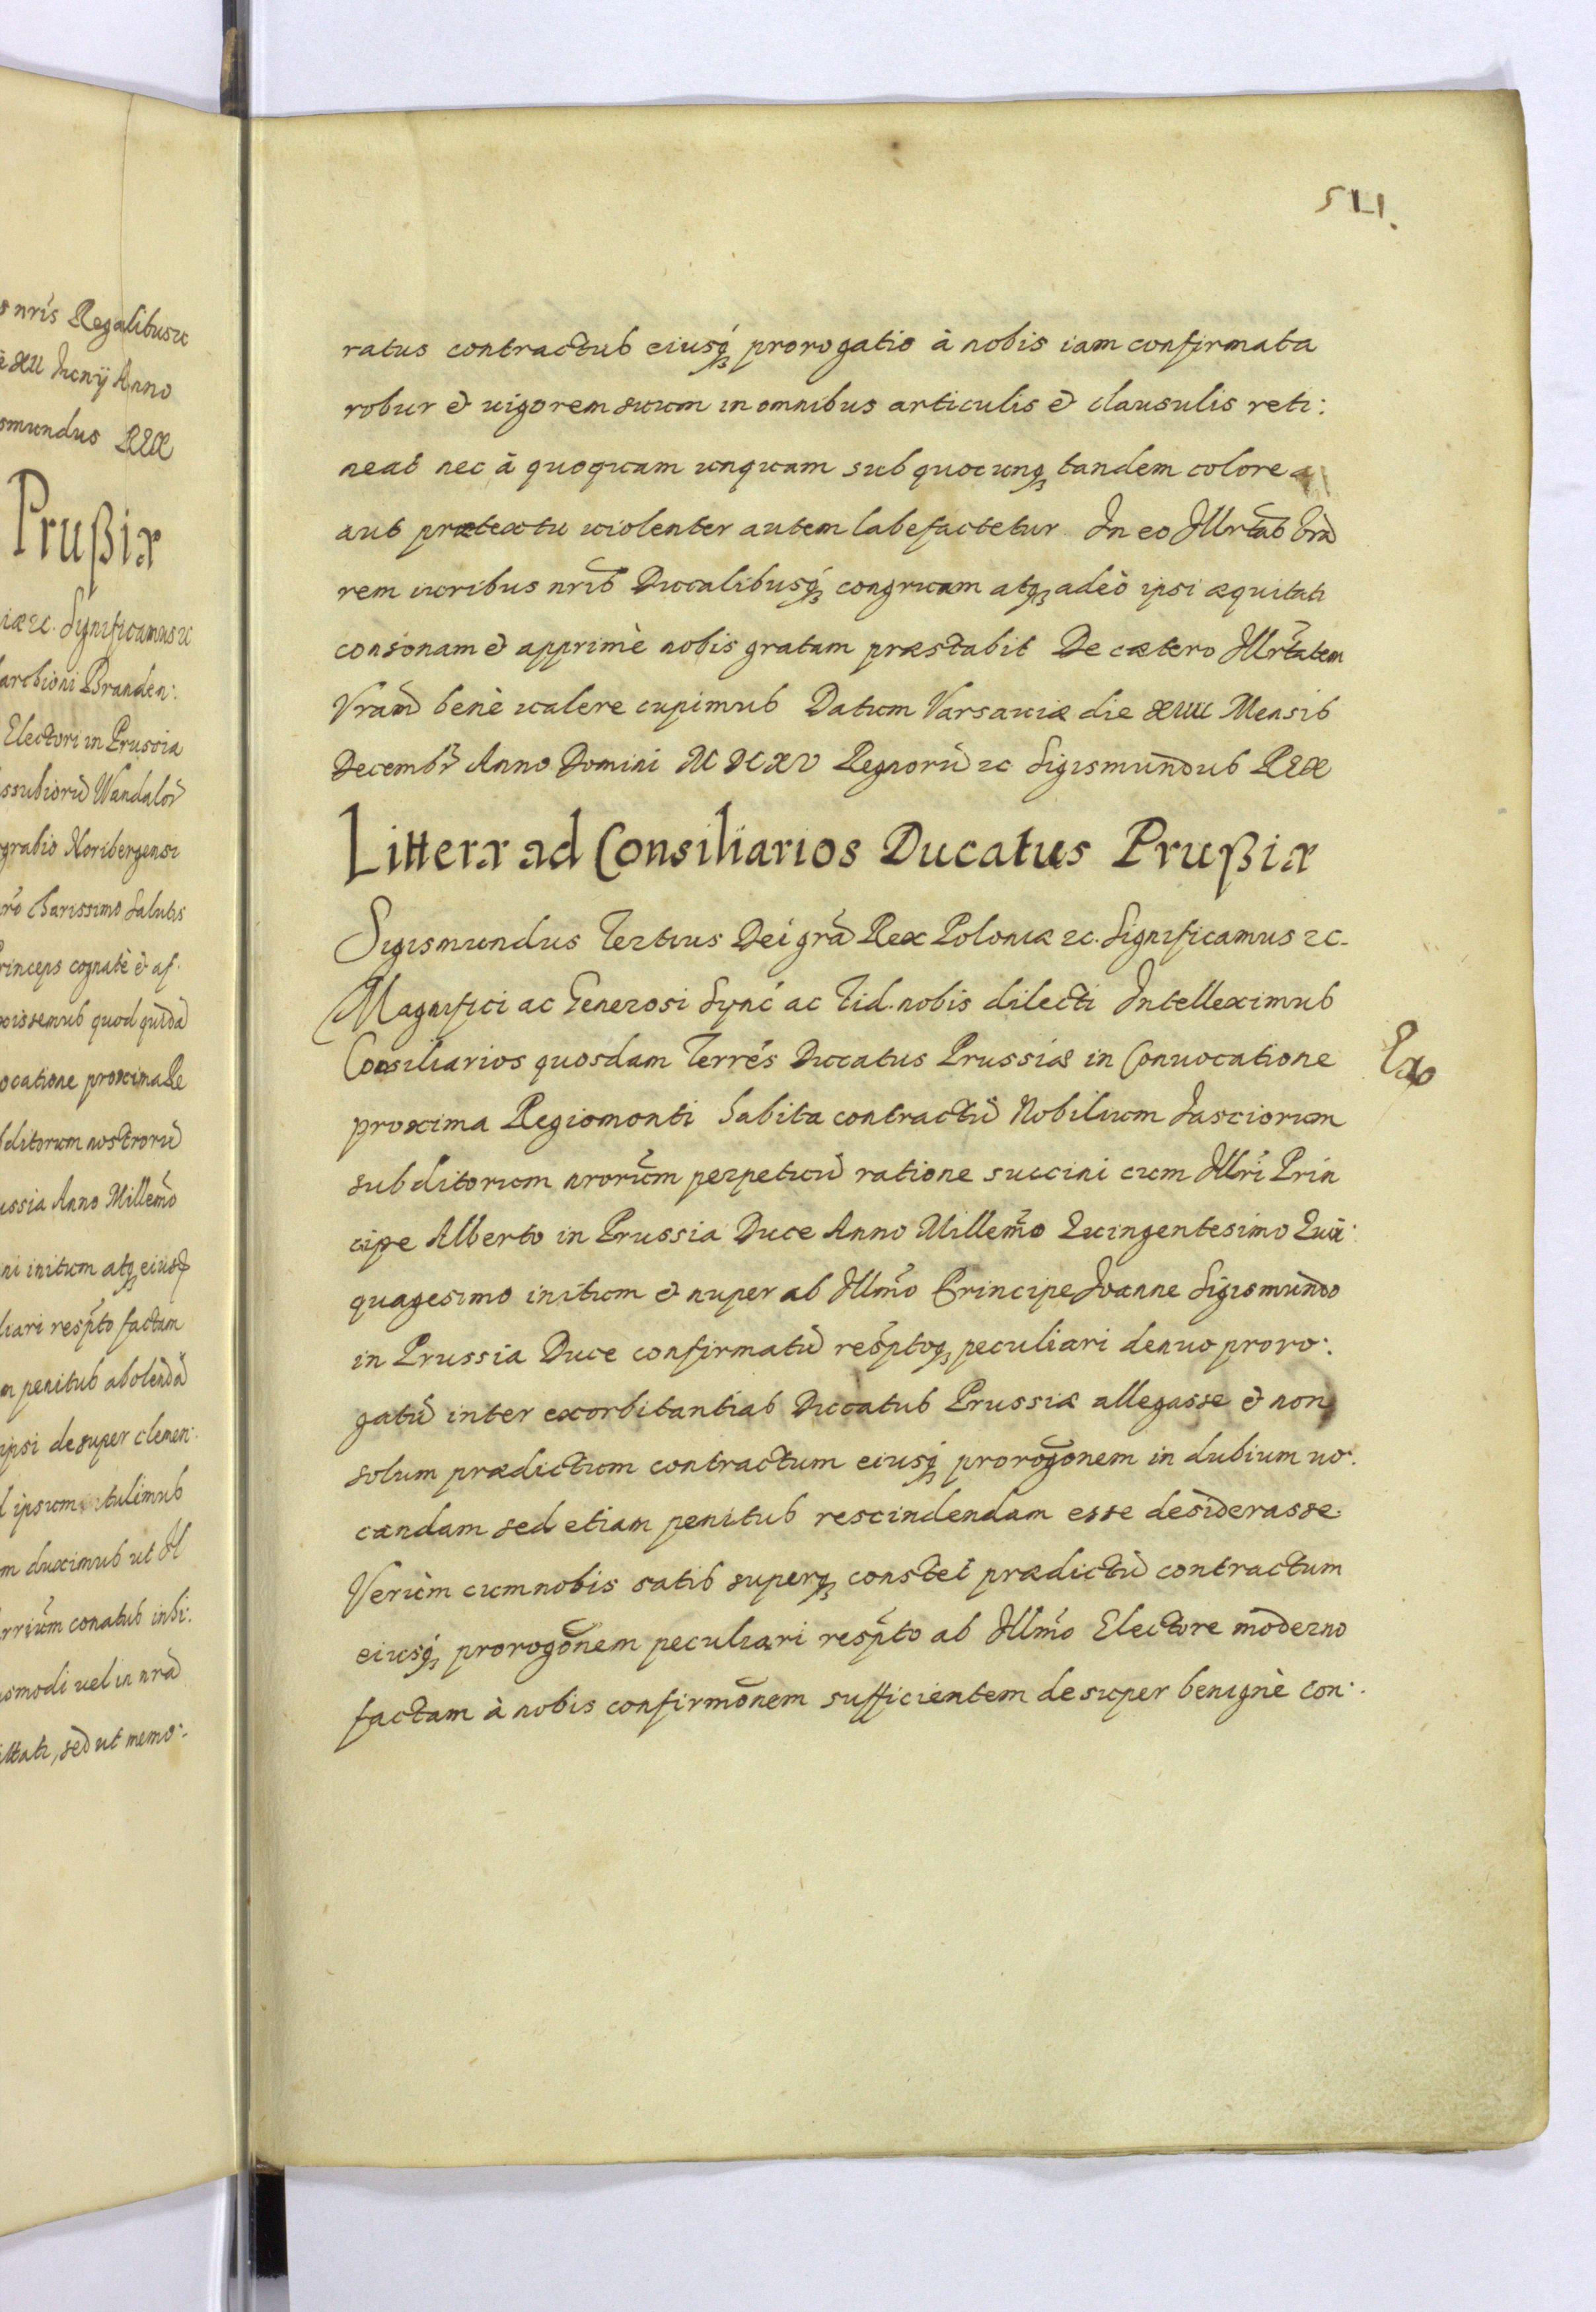 s nris Regalibus ꝛc
Junÿ Anno
smundus REX
Prußiæ
iæ ꝛc. Significamus ꝛc
archioni Branden:
Electori in Prussia
ssubiorū Wandalor̄
grabio Noribergensi
Charissimo Salutis
rinceps cognatè & af:
oissemus quod quidā
ocatione proxima Re
bditorum nostrorū
ussia Anno Millem̃o
ni initum atqꝫ eiusqꝫ
liari resp̃to factam
m penitus abolendā
ipsi desuper clemen:
d ipsum tulimus
m duximus ut Il
conatus inhi:
smodi uel in nrā
ttati, sed ut memo:
511.
ratus contractus eiusqꝫ prorogatio à nobis iam confirmata
robur & uigorem suum in omnibus articulis & clausulis reti:
neat nec à quoquam unquam sub quocunqꝫ tandem colore
aut prætextu uiolenter autem labefactetur In eo Illrtas Vrā
rem iuribus nris Ducalibusqꝫ congruam atqꝫ adeò ipsi æquitati
consonam & apprimè nobis gratam præstabit De cætero Illrtatem
Vram̄ benè ualere cupimus Datum Varsauiæ die XIIII Mensis
Decembr̃ Anno Domini MDCXV Regnorū ꝛc Sigismundus REX
Litteræ ad Consiliarios Ducatus Prußiæ
Sigismundus Tertius Dei grā Rex Poloniæ ꝛc. Significamus ꝛc.
Magnifici ac Generosi Sync̃ ac fid. nobis dilecti Intelleximus
Consiliarios quosdam Terrẽs Ducatus Prussiæ in Conuocatione
Exo
proxima Regiomonti habita contractū Nobilium Jasciorum
subditorum nrorum̃ perpetuū ratione succini cum Illri Prin
cipe Alberto in Prussia Duce Anno Millem̃o Quingentesimo Quī:
quagesimo initum & nuper ab Illm̃o Principe Joanne Sigismundo
in Prussia Duce confirmatū resp̃toqꝫ peculiari denuo proro:
gatū inter exorbitantias Ducatus Prussiæ allegasse & non
solum prædictum contractum eiusqꝫ prorogõnem in dubium uo:
candam sed etiam penitus rescindendam esse desiderasse.
Verùm cum nobis satis superqꝫ constet prædictū contractum
eiusqꝫ prorogõnem peculiari resp̃to ab Illm̃o Electore moderno
factam à nobis confirmõnem sufficientem desuper benignè con: